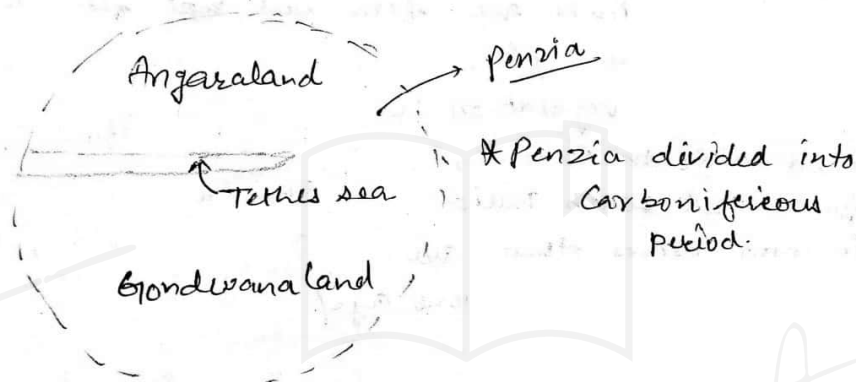 Angaraland
Penzia
Tethis sea
* Penzia divided into
Carboniferous
period.
Gondwanaland